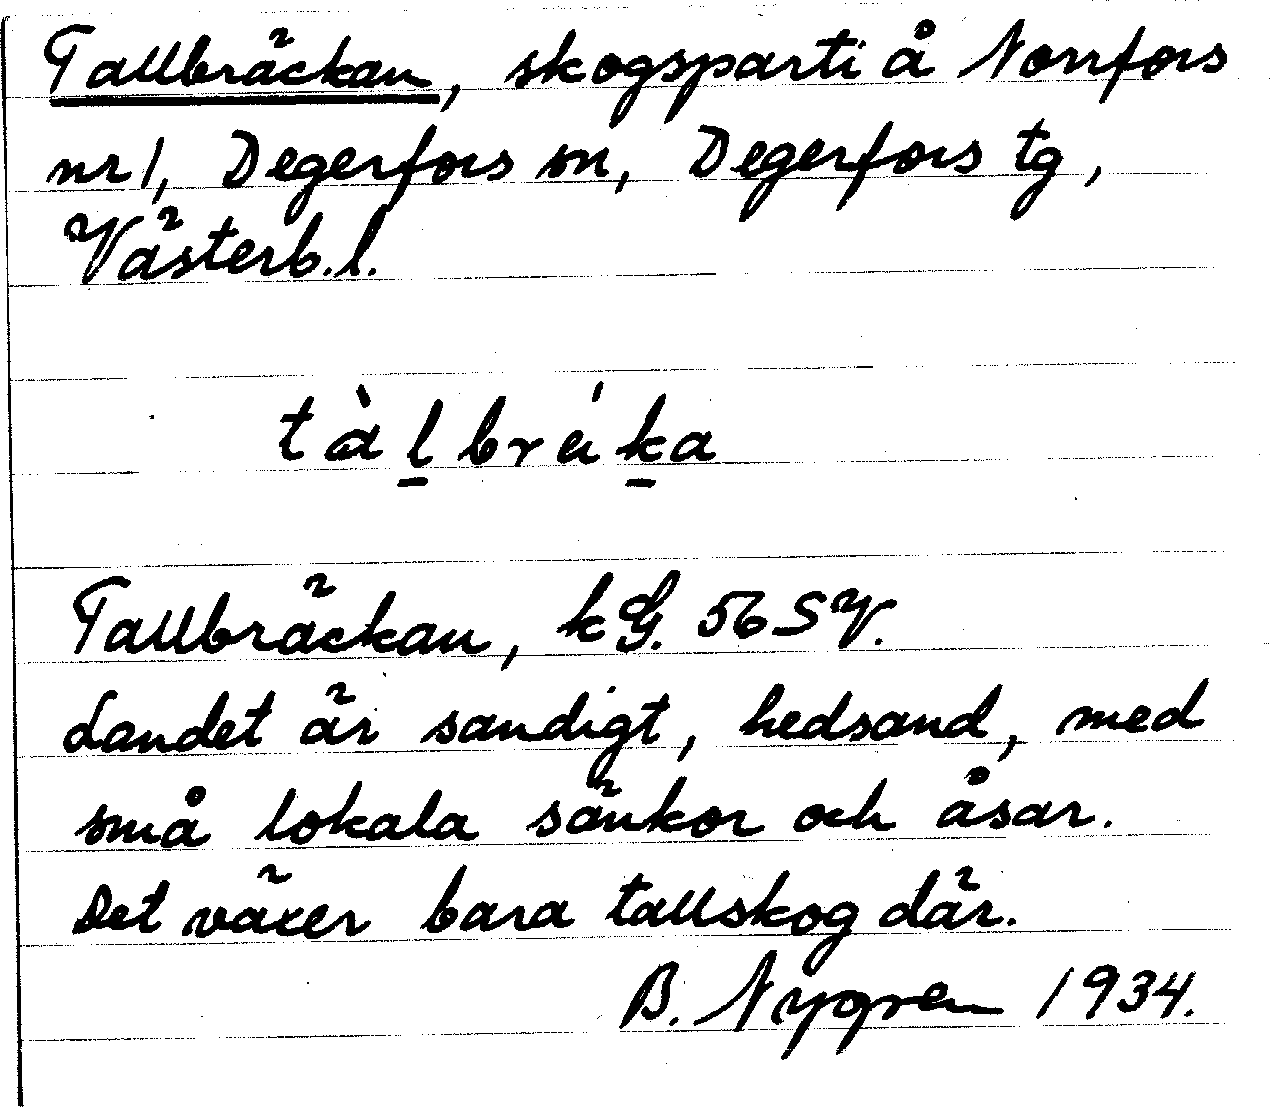 Tallbräckan, skogsparti å Norrfors
nr 1, Degerfors sn, Degerfors tg,
Västerb.l.
tàl̠bréi̍k̠a
Tallbräckan, kG. 56 SV.
Landet är sandigt, hedsand, med
små lokala sänkor och åsar.
Det växer bara tallskog där.
B. Nygren 1934.